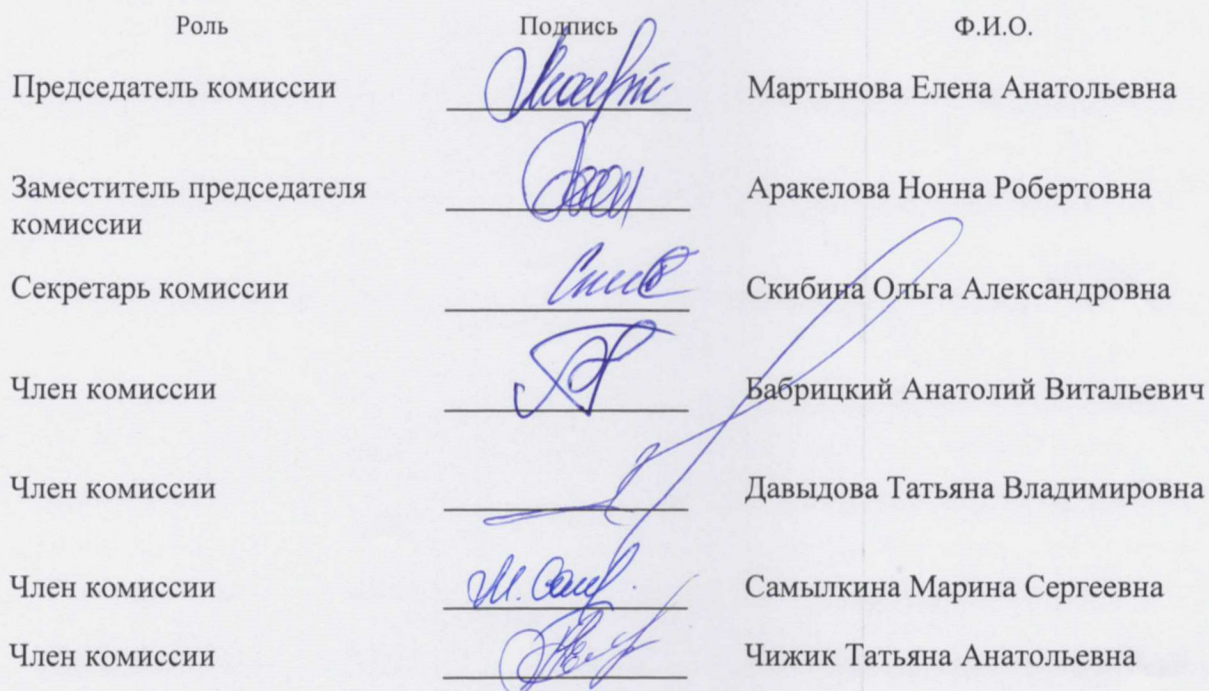 Роль Подпись Ф.И.О.
Председатель комиссии Мартынова Елена Анатольевна
Заместитель председателя Аракелова Нонна Робертовна
комиссии
Секретарь комиссии Скибина Ольга Александровна
Член комиссии Бабрицкий Анатолий Витальевич
Член комиссии Давыдова Татьяна Владимировна
Член комиссии Самылкина Марина Сергеевна
Член комиссии Чижик Татьяна Анатольевна